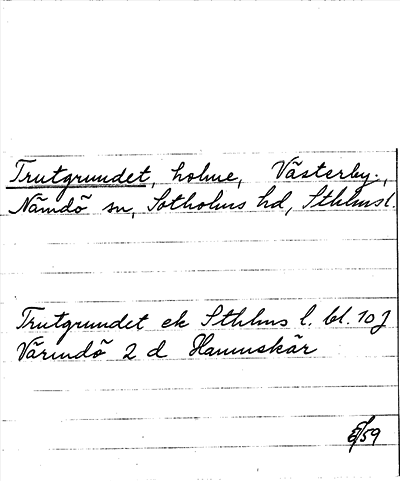 Trutgrundet, holme, Västerby,
Nämdö sn, Sotholms hd, Sthlmsl.
Trutgrundet ek Sthlms l. bl. 10J
Värmdö 2 d Hamnskär
/59